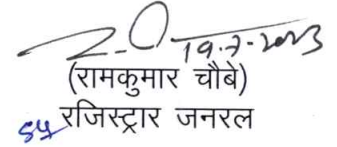 19-7-2023
(रामकुमार चौबे)
रजिस्ट्रार जनरल